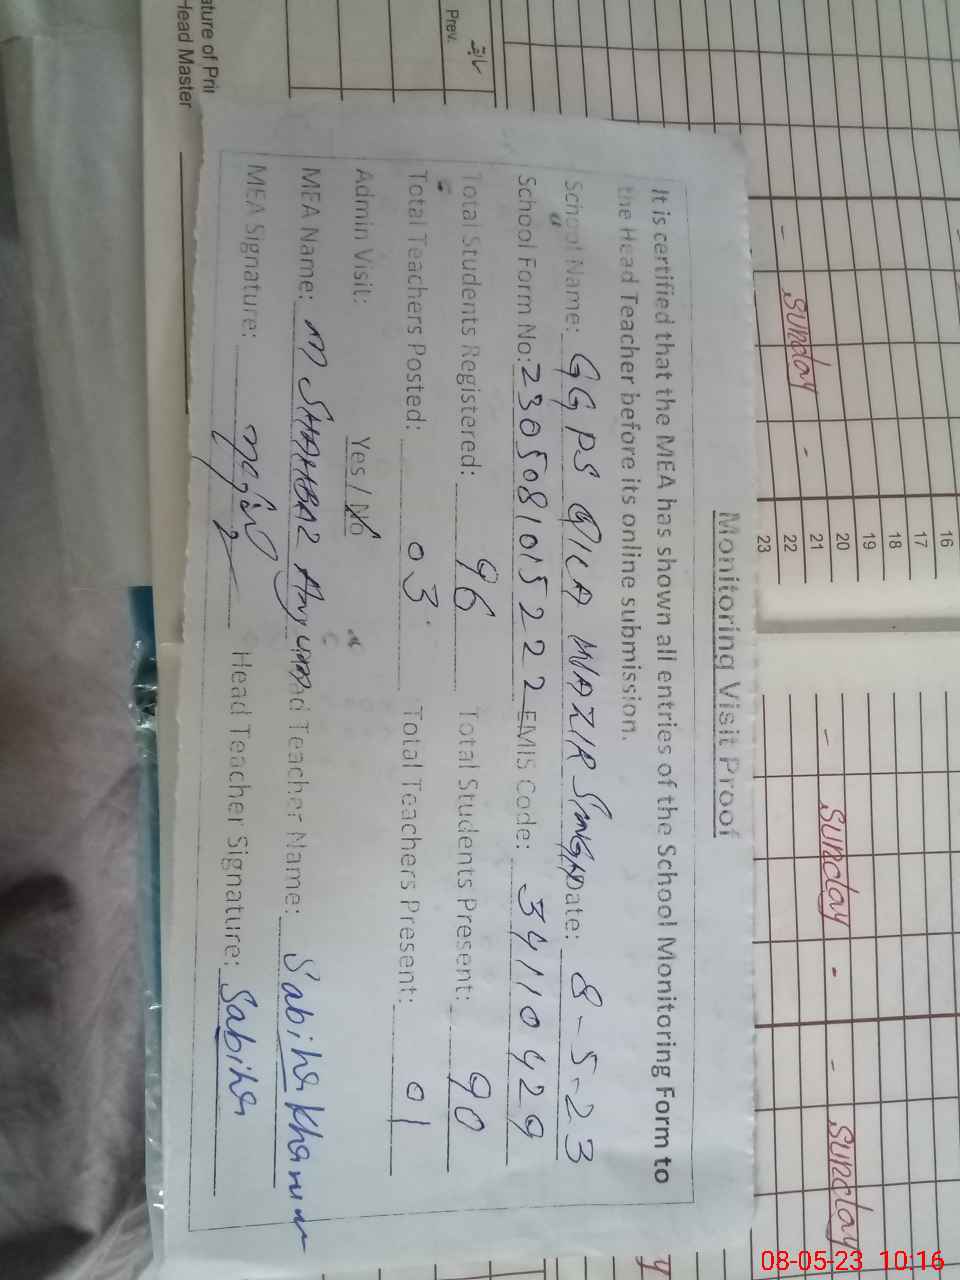 Monitoring Visit Proof
It is certified that the MEA has shown all entries of the School Monitoring Form to
the Head Teacher before its online submission.
School Name: GGPS QILA WAZIR SINGH Date: 8-5-23
School Form No: 2305081015222 EMIS Code: 34110429
Total Students Registered: 96 Total Students Present: 90
Total Teachers Posted: 03 Total Teachers Present: 01
Admin Visit: Yes / No
MEA Name: M SHAHBAZ Head Teacher Name: Sabiha Khanum
MEA Signature: Head Teacher Signature: Sabiha
ature of Pri
Head Master
Prev.
16
17
18
19
20
21
22
23
Sunday
Sunday
Sunday
08-05-23 10:16